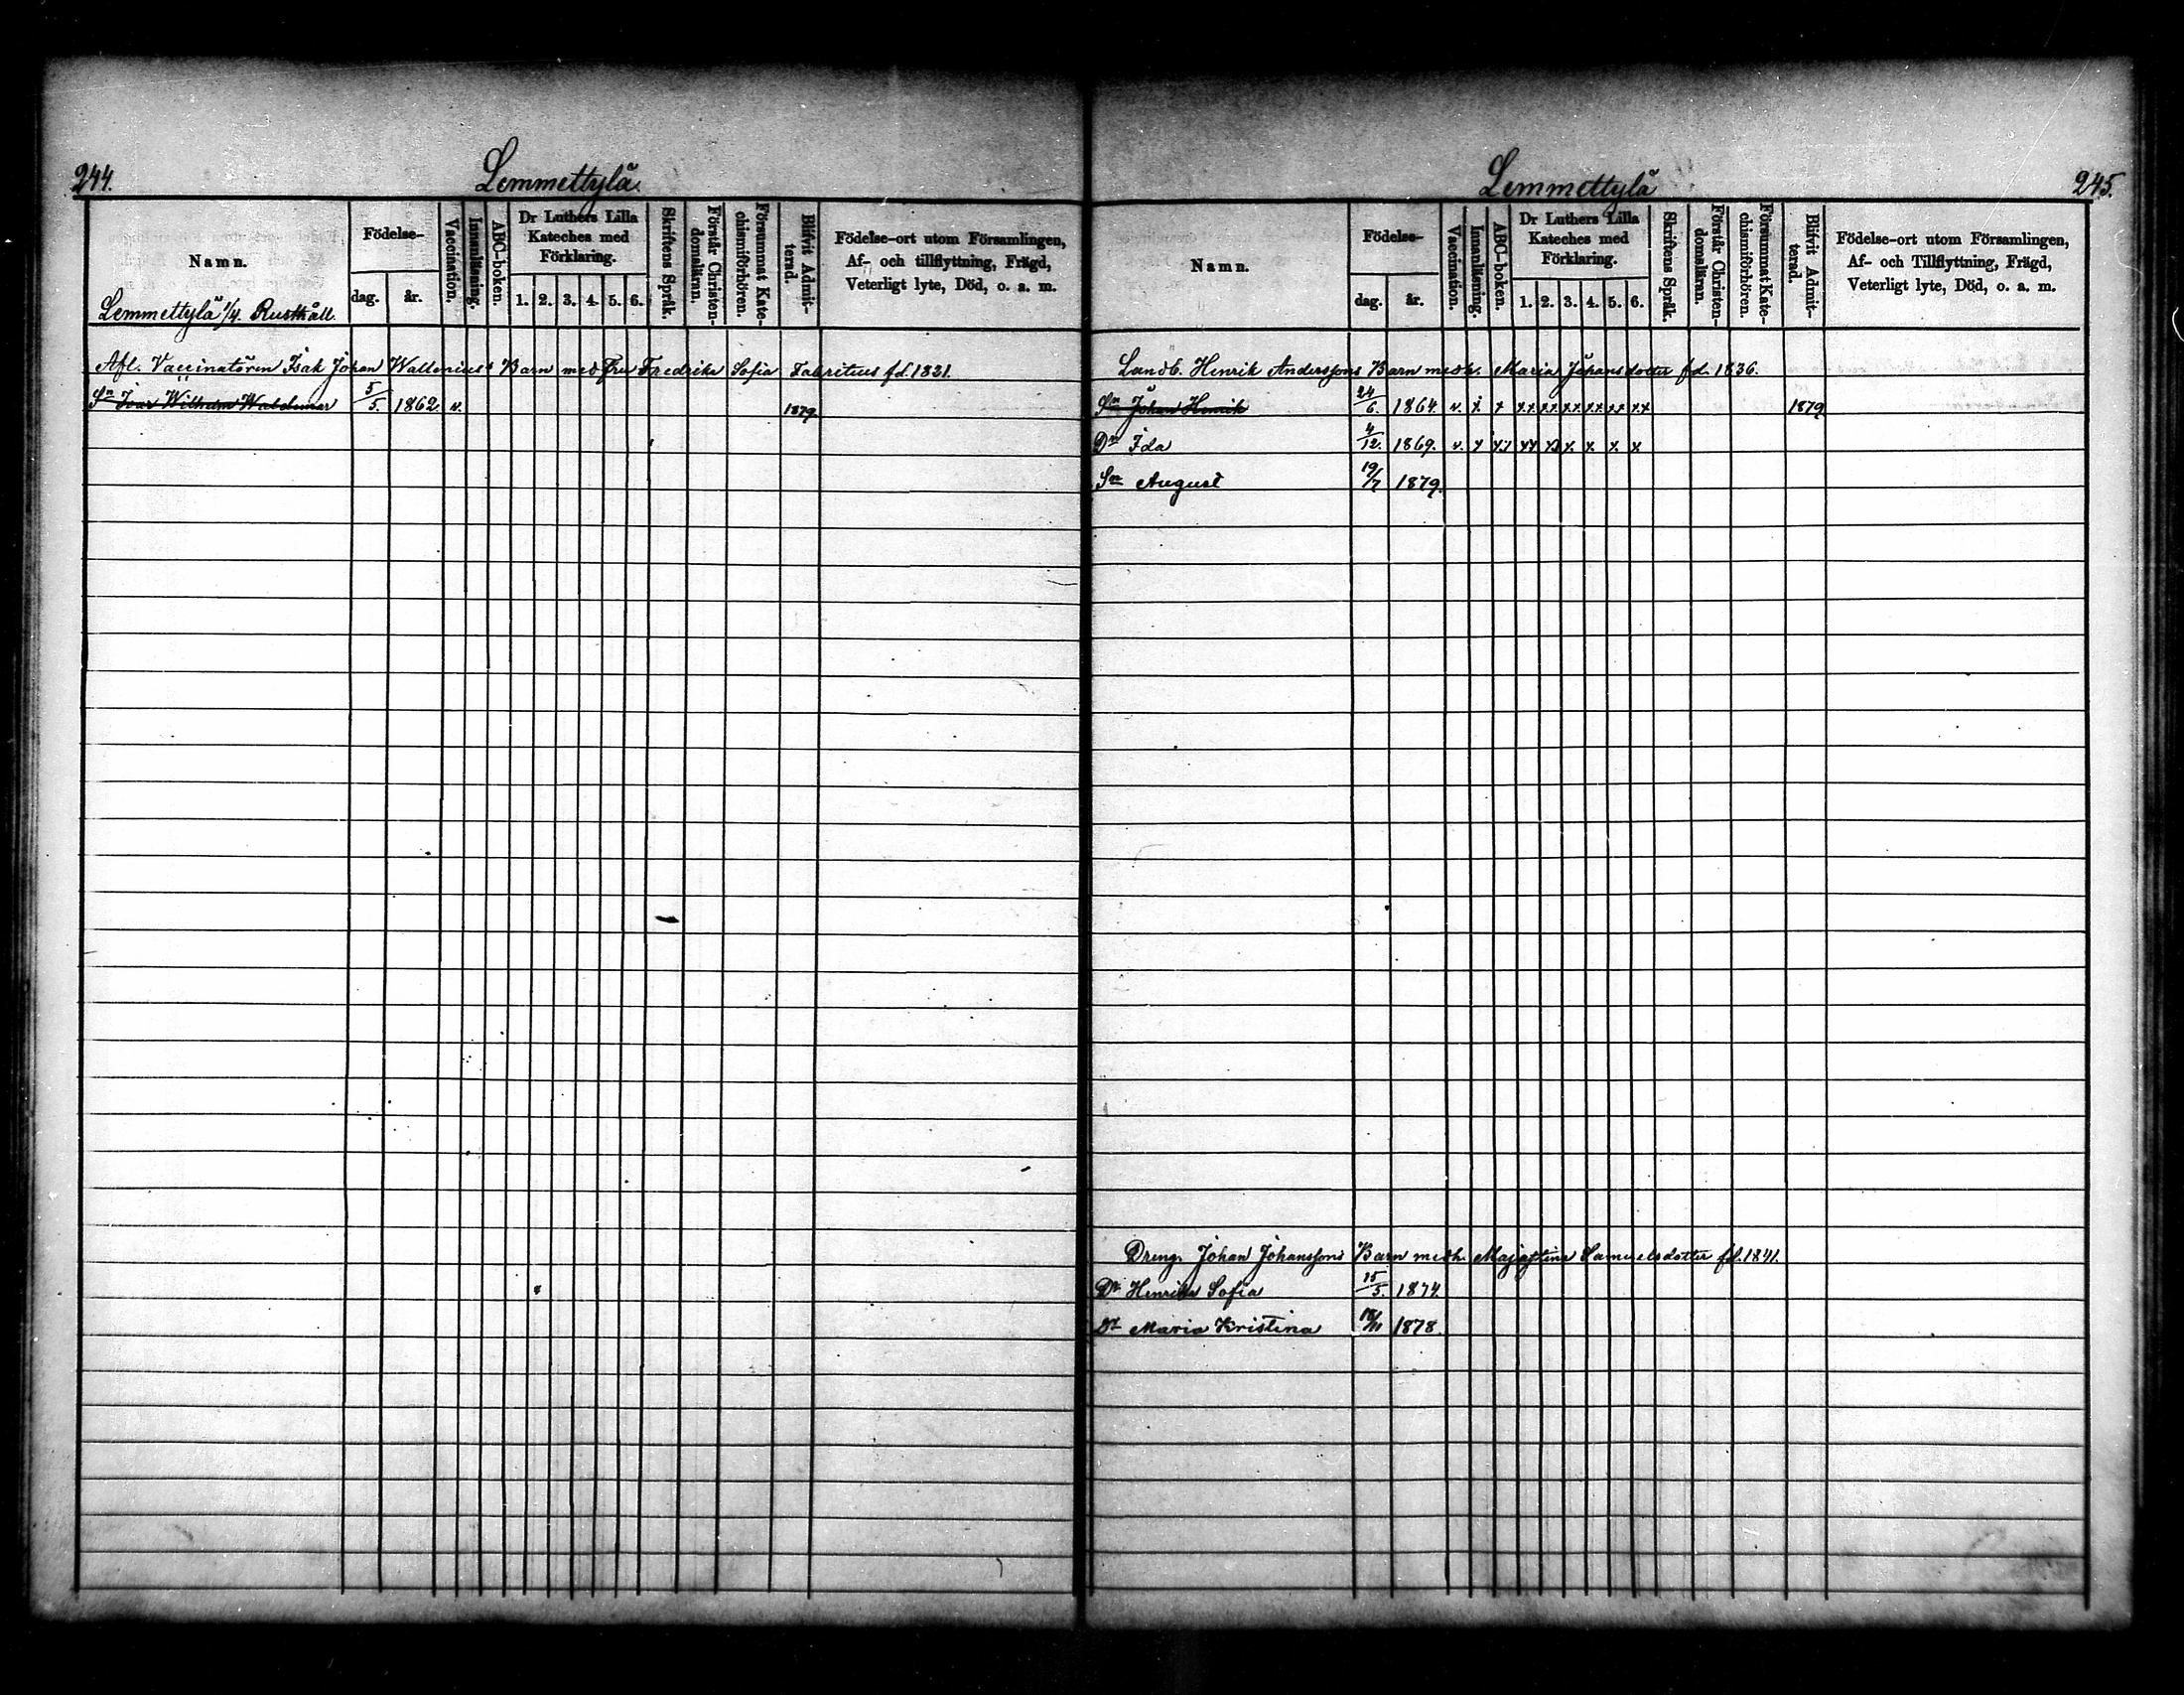 244.
Lemmettylä.
Namn.
Födelse-
dag.
år.
Vaccination.
Innanläsning.
ABC-boken.
Dr Luthers Lilla
Kateches med
Förklaring.
1. 2. 3. 4. 5. 6.
Skriftens Språk.
Förstår Christen-
domsläran.
Försummat Kate-
chismiförhören.
Blifvit Admit-
terad.
Födelse-ort utom Församlingen,
Af- och tillflyttning, Frägd,
Veterligt lyte, Död, o. a. m.
Lemmettylä 1/4. Rusthåll.
Afl. Vaccinatören Isak Johan Wallenius's Barn med Fru Fredrika Sofia Fabritius fd. 1821.
Sn Ivar Wilhelm Waldemar 5/5. 1862. v. 1879
Lemmettylä
245.
Namn.
Födelse-
dag.
år.
Vaccination.
Innanläsning.
ABC-boken.
Dr Luthers Lilla
Kateches med
Förklaring.
1. 2. 3. 4. 5. 6.
Skriftens Språk.
Förstår Christen-
domsläran.
Försummat Kate-
chismiförhören.
Blifvit Admit-
terad.
Födelse-ort utom Församlingen,
Af- och Tillflyttning, Frägd,
Veterligt lyte, Död, o. a. m.
Landb. Henrik Anderssons Barn med h. Maria Johansdotter fd. 1836.
Sn Johan Henrik 24/6. 1864. v. x x xx xx xx xx xx xx 1879
Dr Ida 4/12. 1869. v. x xx xx xx x. x. x. x
Sn August 19/7 1879.
Dreng. Johan Johanssons Barn med h. Majastina Samuelsdotter fd. 1841.
Dr Henrika Sofia 15/5. 1874.
Dr Maria Kristina 1878.